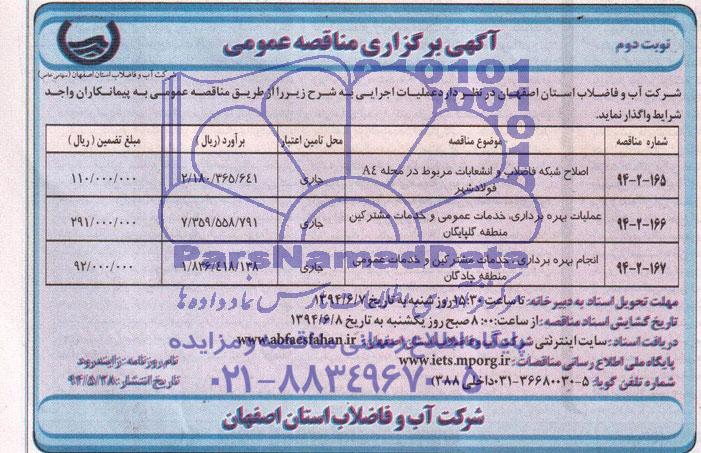 آگهی برگزاری مناقصه عمومی
نوبت دوم
شرکت آب و فاضلاب استان اصفهان (سهامی خاص)
شرکت آب و فاضلاب استان اصفهان در نظر دارد عملیات اجرایی به شرح زیر را از طریق مناقصه عمومی به پیمانکاران واجد
شرایط واگذار نماید.
شماره مناقصه موضوع مناقصه محل تامین اعتبار برآورد (ریال) مبلغ تضمین (ریال)
۹۴-۲-۱۶۵ اصلاح شبکه فاضلاب و انشعابات مربوط در محله A۴ فولادشهر جاری ۲/۱۸۰/۳۶۵/۶۴۱ ۱۱۰/۰۰۰/۰۰۰
۹۴-۲-۱۶۶ عملیات بهره برداری، خدمات عمومی و خدمات مشترکین منطقه گلپایگان جاری ۷/۳۵۹/۵۵۸/۷۹۱ ۲۹۱/۰۰۰/۰۰۰
۹۴-۲-۱۶۷ انجام بهره برداری، خدمات مشترکین و خدمات عمومی منطقه چادگان جاری ۱/۸۳۶/۴۱۸/۱۳۸ ۹۲/۰۰۰/۰۰۰
ParsNamadData
مهلت تحویل اسناد به دبیرخانه: تا ساعت ۱۵:۳۰ روز شنبه به تاریخ ۱۳۹۴/۶/۷
تاریخ گشایش اسناد مناقصه: از ساعت ۸:۰۰ صبح روز یکشنبه به تاریخ ۱۳۹۴/۶/۸
دریافت اسناد: سایت اینترنتی شرکت آب و فاضلاب استان اصفهان www.abfaesfahan.ir
پایگاه ملی اطلاع رسانی مناقصات: www.iets.mporg.ir
شماره تلفن گویا: ۵-۳۶۶۸۰۰۳۰-۰۳۱ (داخلی ۳۸۸)
نام روزنامه: زاینده رود
تاریخ انتشار: ۹۴/۵/۲۸
۰۲۱-۸۸۳۴۹۶۷۰-۵
شرکت آب و فاضلاب استان اصفهان